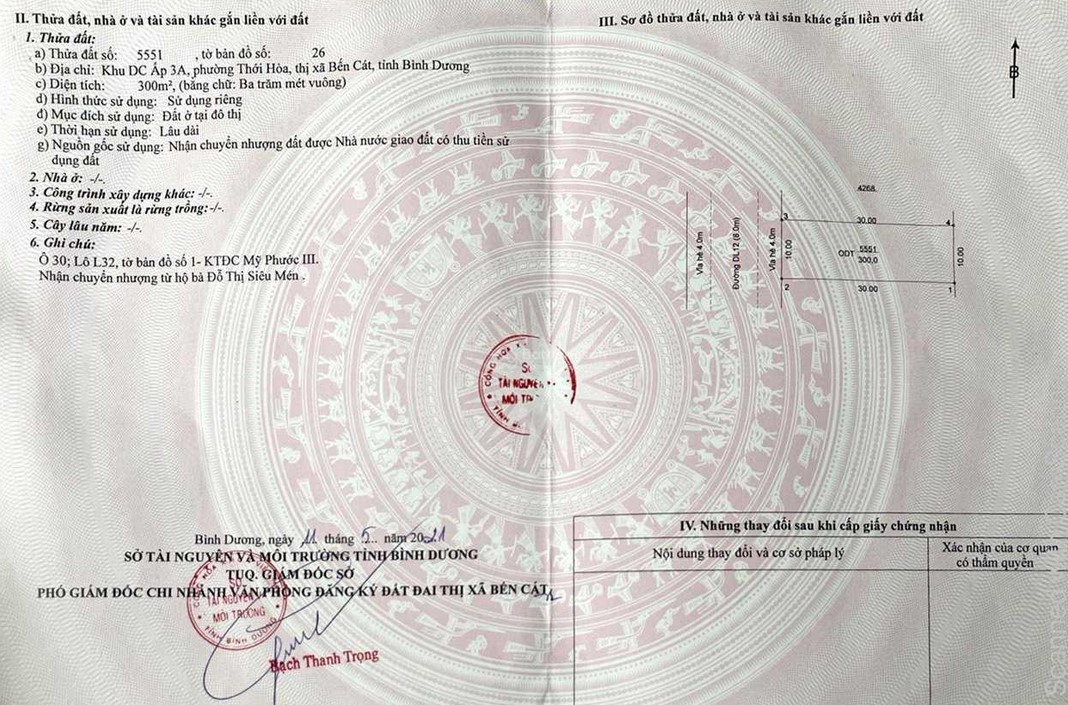 II. Thửa đất, nhà ở và tài sản khác gắn liền với đất
1. Thửa đất:
a) Thửa đất số: 5551 , tờ bản đồ số: 26
b) Địa chỉ: Khu DC Ấp 3A, phường Thới Hòa, thị xã Bến Cát, tỉnh Bình Dương
c) Diện tích: 300m², (bằng chữ: Ba trăm mét vuông)
d) Hình thức sử dụng: Sử dụng riêng
đ) Mục đích sử dụng: Đất ở tại đô thị
e) Thời hạn sử dụng: Lâu dài
g) Nguồn gốc sử dụng: Nhận chuyển nhượng đất được Nhà nước giao đất có thu tiền sử
dụng đất
2. Nhà ở: -/-.
3. Công trình xây dựng khác: -/-.
4. Rừng sản xuất là rừng trồng:-/-.
5. Cây lâu năm: -/-.
6. Ghi chú:
Ô 30; Lô L32, tờ bản đồ số 1- KTĐC Mỹ Phước III.
Nhận chuyển nhượng từ hộ bà Đỗ Thị Siêu Mén .
Bình Dương, ngày 11 tháng 5.. năm 2021
SỞ TÀI NGUYÊN VÀ MÔI TRƯỜNG TỈNH BÌNH DƯƠNG
TUQ. GIÁM ĐỐC SỞ
PHÓ GIÁM ĐỐC CHI NHÁNH VĂN PHÒNG ĐĂNG KÝ ĐẤT ĐAI THỊ XÃ BẾN CÁT
SỞ
TÀI NGUYÊN
MÔI TRƯỜNG
TỈNH BÌNH DƯƠNG
Bạch Thanh Trọng
CỘNG HÒA
TÀI NGUYÊN
MÔI
TỈNH
III. Sơ đồ thửa đất, nhà ở và tài sản khác gắn liền với đất
B
4268
3
30.00
4
Vỉa hè 4.0m
Đường DL12 (8.0m)
Vỉa hè 4.0m
10.00
ODT 5551
300.0
10.00
2
30.00
1
IV. Những thay đổi sau khi cấp giấy chứng nhận
Nội dung thay đổi và cơ sở pháp lý
Xác nhận của cơ quan
có thẩm quyền